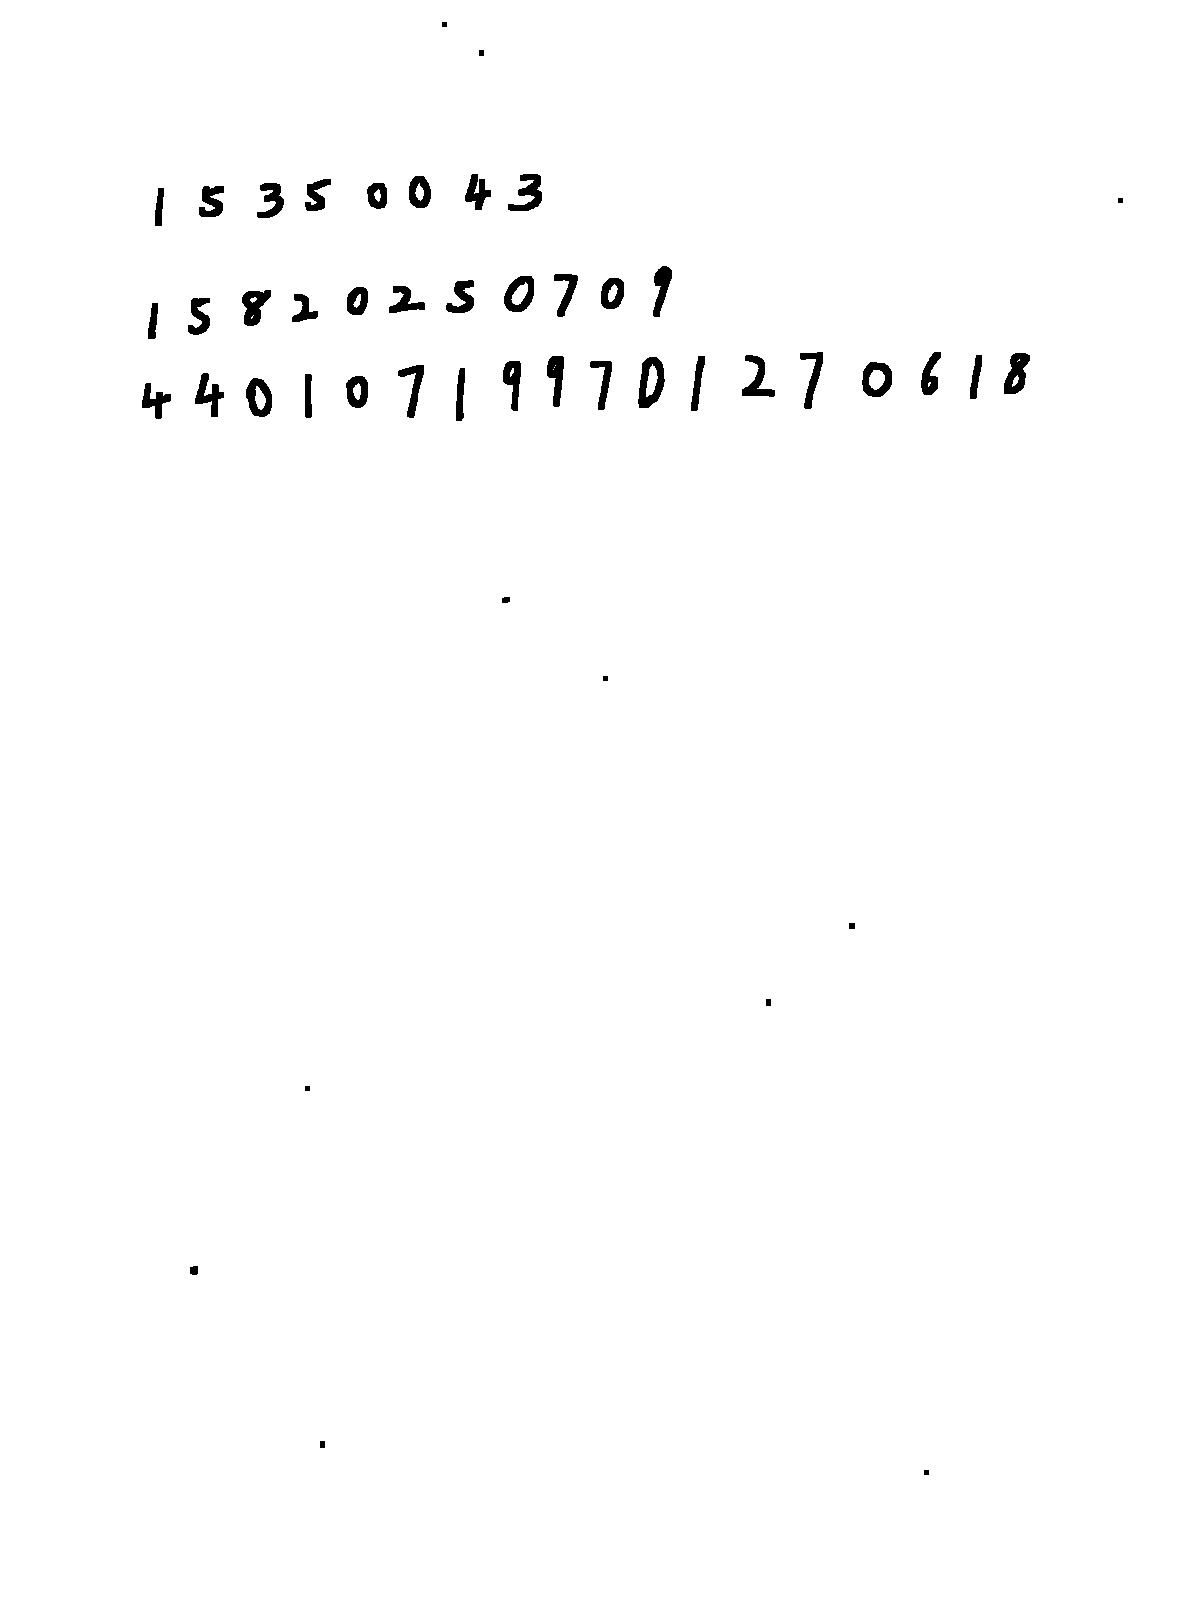 15350043
15820250709
440107199701270618